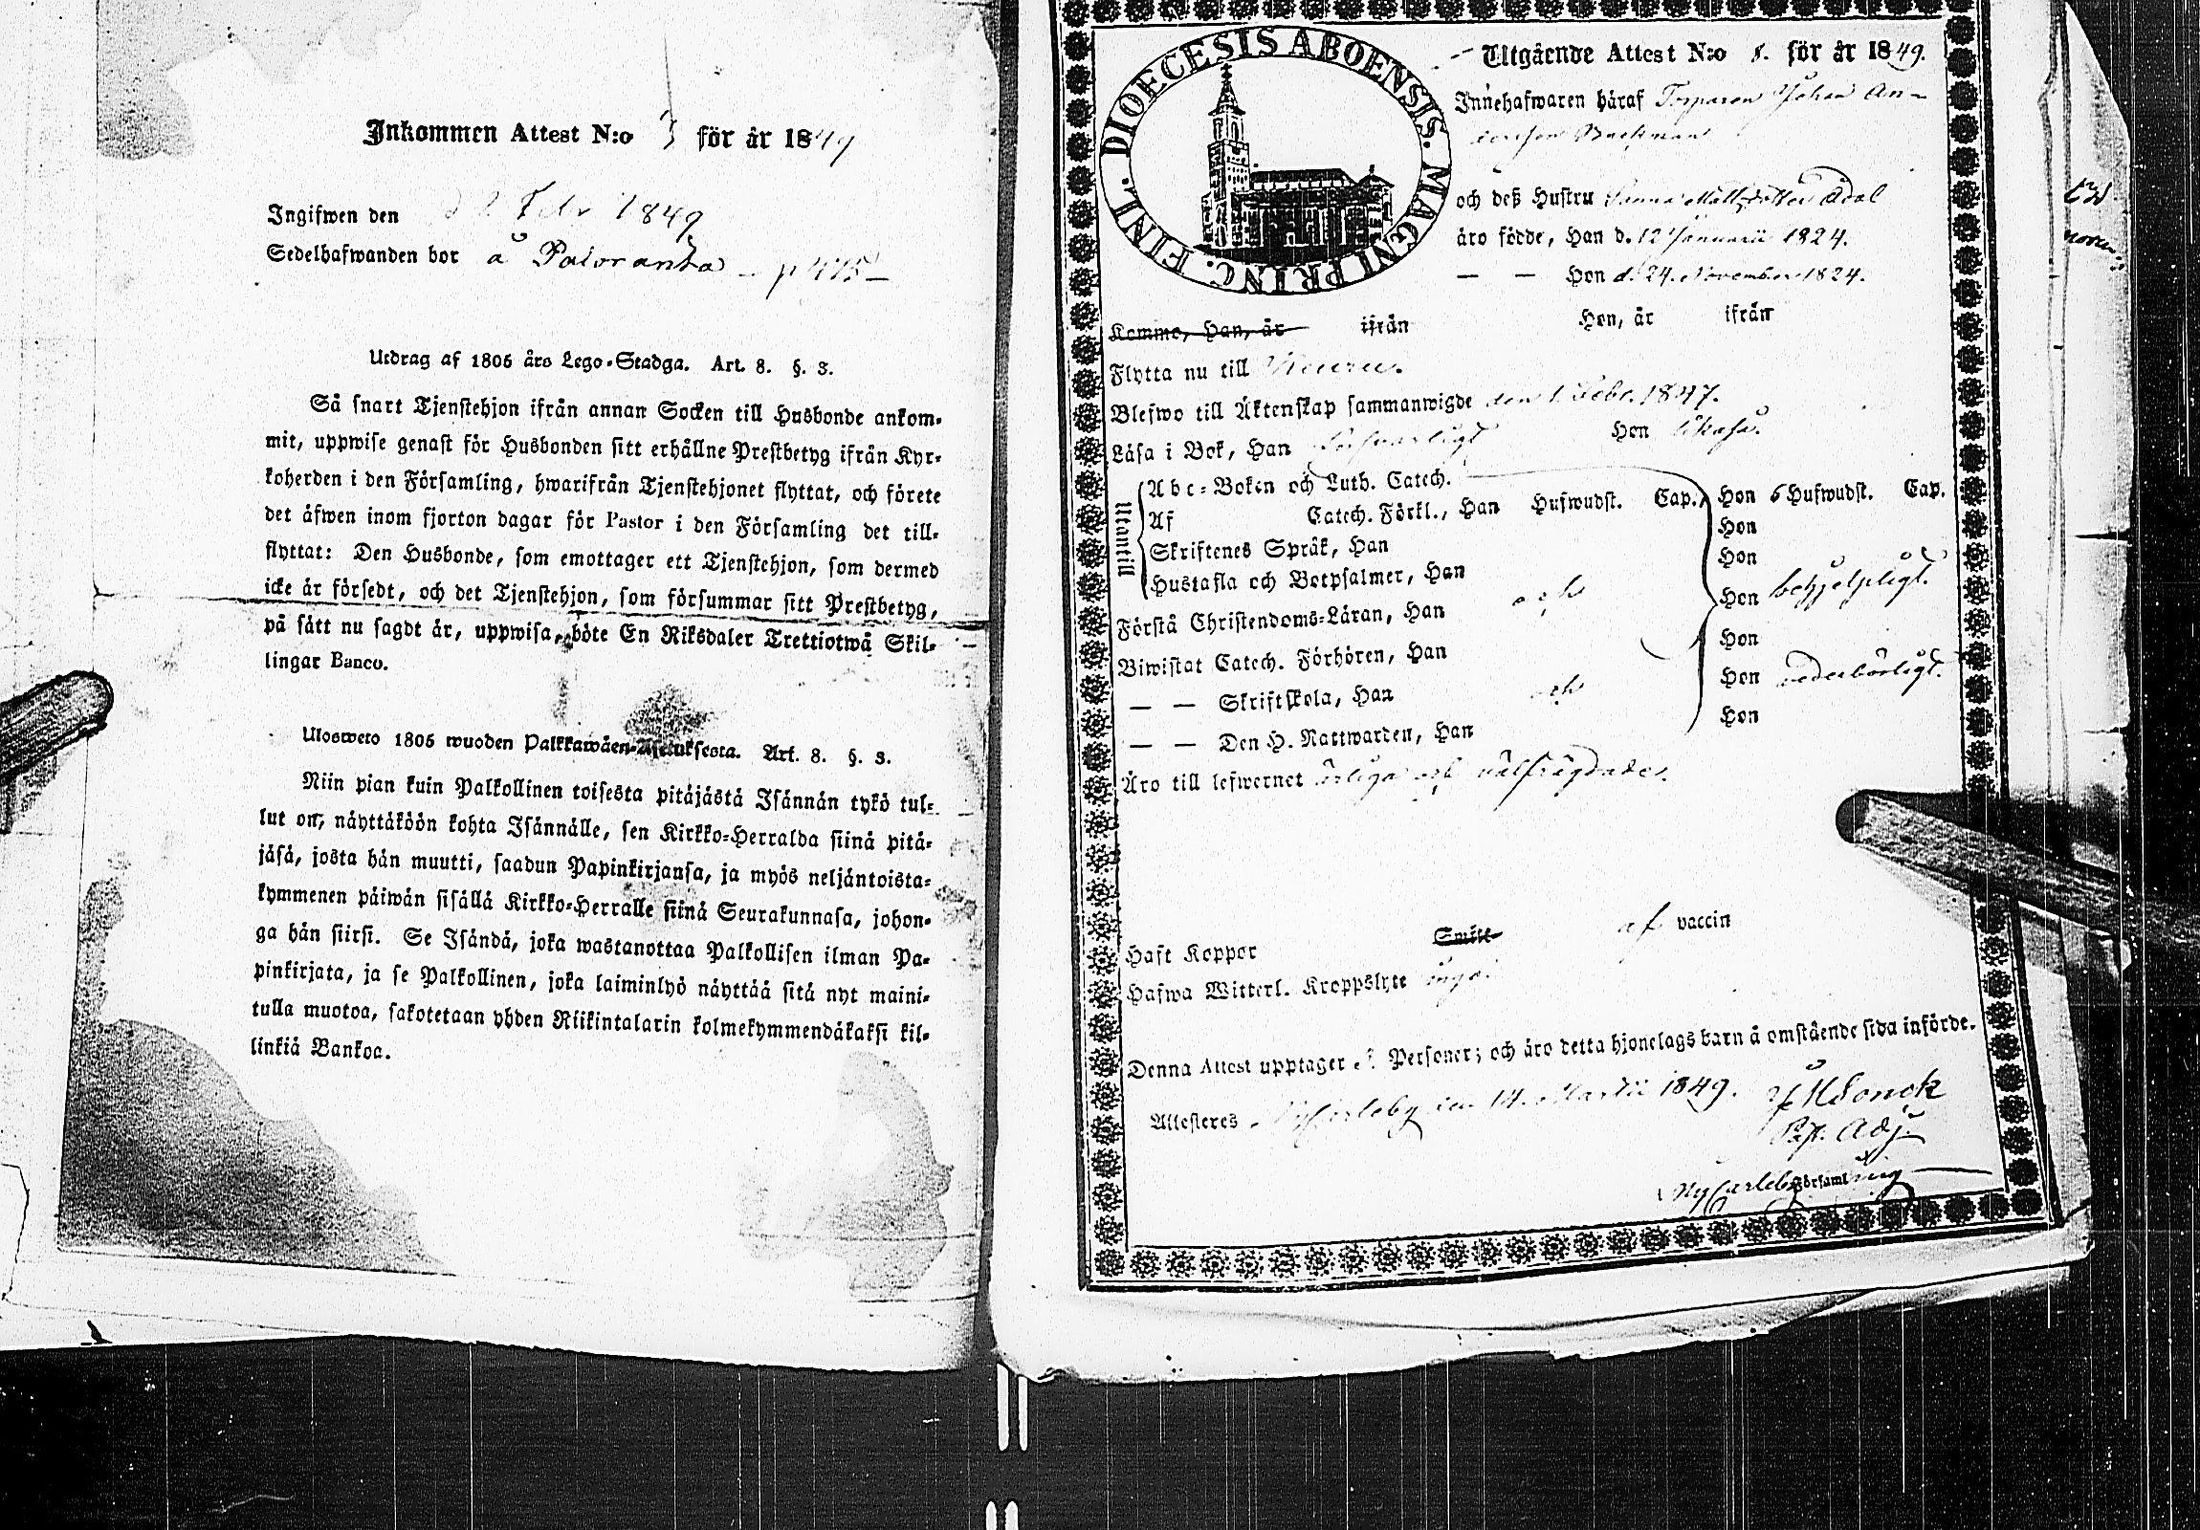 Inkommen Attest N:o 3 för år 1849
Ingifwen den Febr 1849
Sedelhafwanden bor å Poloranta p 475
Utdrag af 1805 års Lego-Stadga. Art. 8. §. 3.
Så snart Tjenstehjon ifrån annan Socken till Husbonde ankom-
mit, uppwise genast för Husbonden sitt erhållne Prestbetyg ifrån Kyr-
koherden i den Församling, hwarifrån Tjenstehjonet flyttat, och förete
det äfwen inom fjorton dagar för Pastor i den Församling det till-
flyttat: Den Husbonde, som emottager ett Tjenstehjon, som dermed
icke är försedt, och det Tjenstehjon, som försummar sitt Prestbetyg,
på sätt nu sagdt är, uppwisa, böte En Riksdaler Trettiotwå Skil-
lingar Banco.
Ulosweto 1805 wuoden Palkkawäen-Asetuksesta. Art. 8. §. 3.
Niin pian kuin Palkollinen toisesta pitäjästä Isännän tykö tul-
lut on, näyttäköön kohta Isännälle, sen Kirkko-Herralda siinä pitä-
jäsä, josta hän muutti, saadun Papinkirjansa, ja myös neljäntoista-
kymmenen päiwän sisällä Kirkko-Herralle siinä Seurakunnasa, johon-
ga hän siirsi. Se Isändä, joka wastanottaa Palkollisen ilman Pa-
pinkirjata, ja se Palkollinen, joka laiminlyö näyttää sitä nyt maini-
tulla muotoa, sakotetaan yhden Riikintalarin kolmekymmendäkaksi kil-
linkiä Bankoa.
DIOECESIS ABOENSIS. MAGNI PRINC. FINL.
Utgående Attest N:o 8. för år 1849.
Innehafwaren häraf Torparen Johan An-
dersson Backman
och deß Hustru Sanna Mattsdotter Ädal
äro födde, Han d. 12 Januarii 1824.
— — Hon d. 24. November 1824.
Komme, Han, år ifrån Hon, år ifrån
Flytta nu till Keuru.
Blefwo till Äktenskap sammanwigde den 1. Febr. 1847.
Läsa i Bok, Han försvarligt Hon likaså.
Utantill
Abc-Boken och Luth. Catech.
Af Catech. Förkl., Han Hufwudst. Cap. Hon 6 Hufwudst. Cap.
Hon
Skriftenes Språk, Han Hon
Hustafla och Botpsalmer, Han och Hon behjelpligt.
Förstå Christendoms-Läran, Han Hon
Biwistat Catech. Förhören, Han Hon vederbörligt.
— — Skriftskola, Han och Hon
— — Den H. Nattwarden, Han
Äro till lefwernet ärliga och välfrägdade.
Haft Koppor Smitt af vaccin
Hafwa Witterl. Kroppslyte inga.
Denna Attest upptager Personer; och äro detta hjonelags barn å omstående sida införde.
Attesteres Nycarleby den 14. Martii 1849. Sonck
Past. Adj.
Nycarleby församling